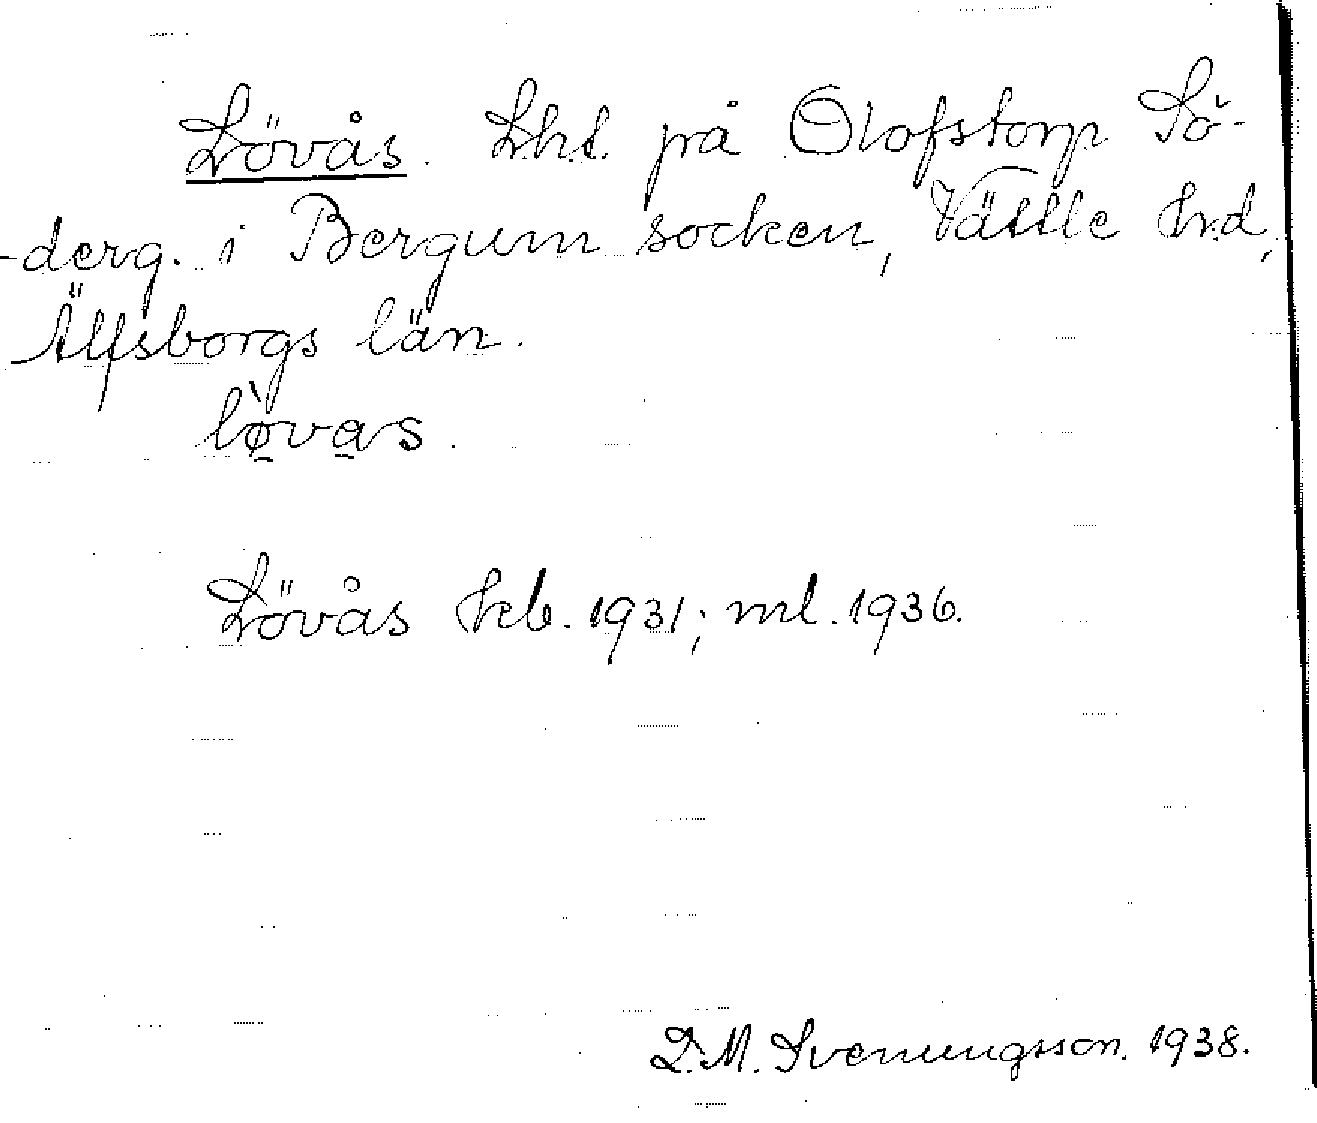 Lövås. Lht. på Olofstorp Sö-
-derg. i Bergum socken, Vättle hd,
Älfsborgs län.
lø̀vas.
Lövås kb. 1931; ml. 1936.
D.M. Svenungsson. 1938.